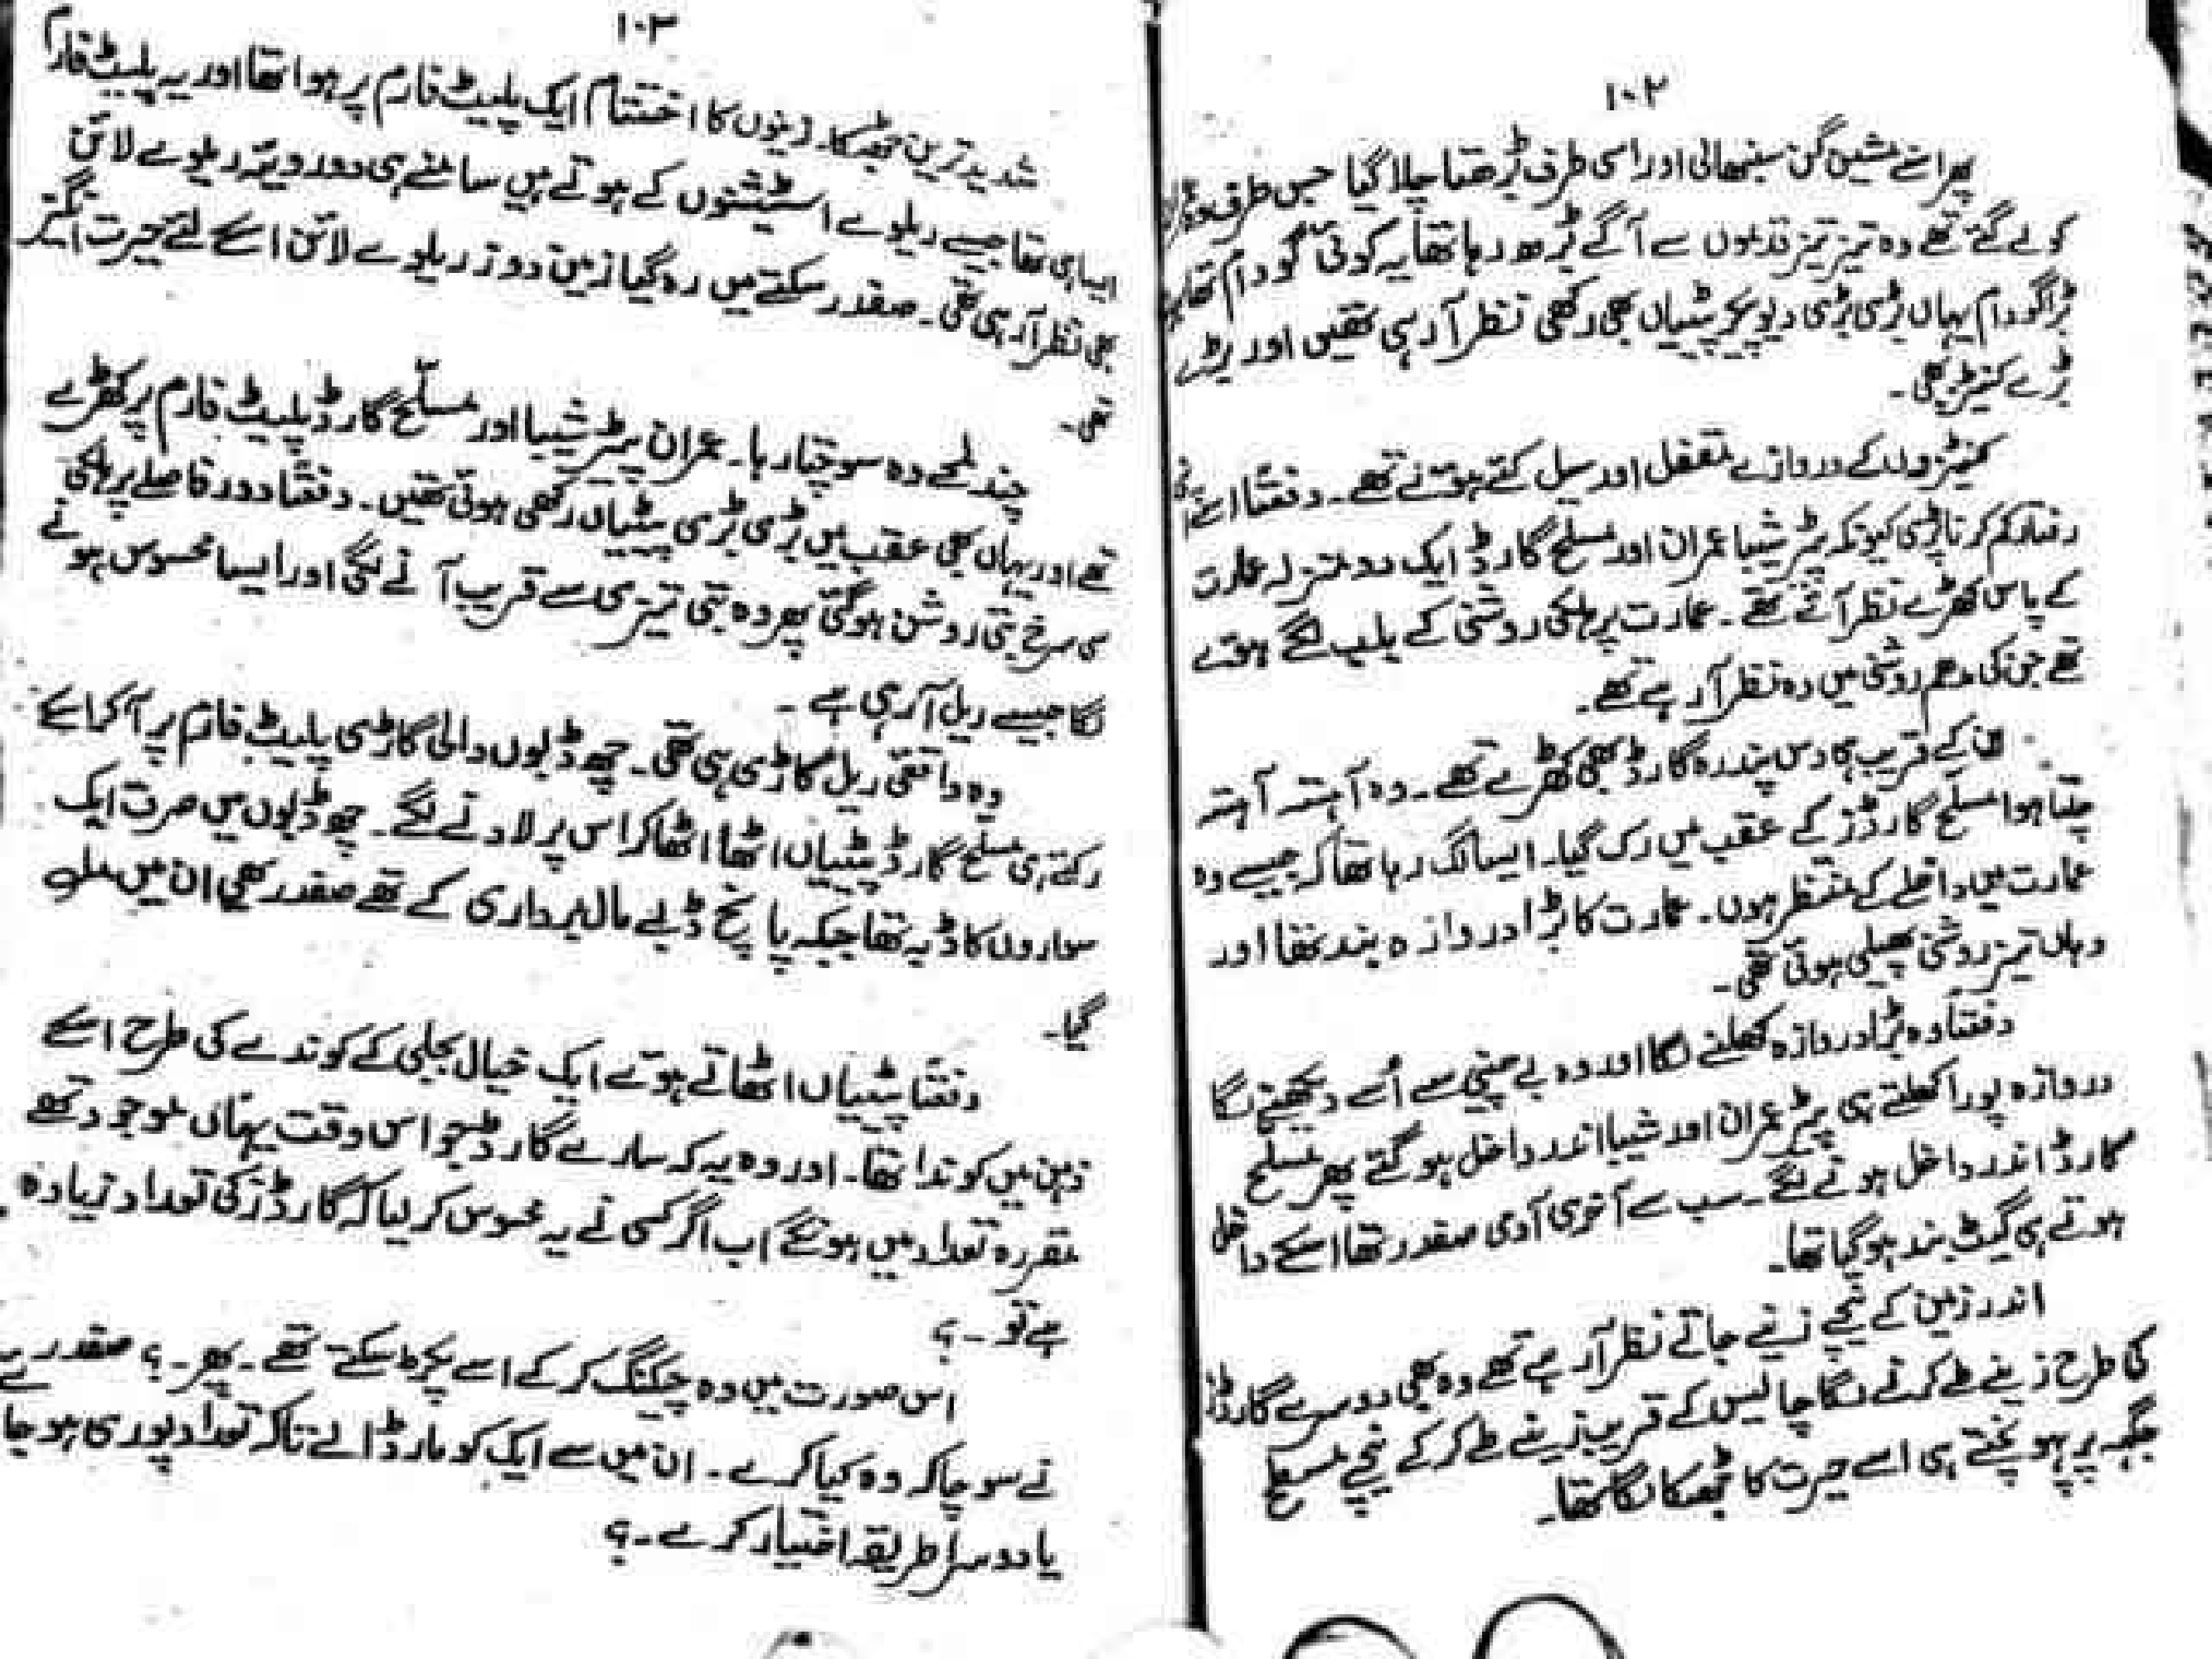 ۱۰۲
پھر اسنے مشین گن سنبھالی اور اسی طرف بڑھتا چلا گیا جس طرف وہ عمران
کولے گئے تھے وہ تیز تیز قدموں سے آگے بڑھ رہا تھا یہ کوئی گودام تھا
بڑا گودام یہاں بڑی بڑی دیوپیکر پیٹیاں بھی رکھی نظر آرہی تھیں اور بڑے
بڑے کنیٹر بھی۔
کنیٹروں کے دروازے مقفل اور سیل کئے ہوئے تھے۔ دفعتاً اسے اپنی
رفتار کم کرنا پڑی کیونکہ پیٹر شیبا عمران اور مسلح گارڈ ایک دو منزلہ عمارت
کے پاس کھڑے نظر آئے تھے۔ عمارت پر ہلکی روشنی کے بلب لگے ہوئے
تھے جن کی مدھم روشنی میں وہ نظر آرہے تھے۔
ان کے قریب ہی دس پندرہ گارڈ بھی کھڑے تھے۔ وہ آہستہ آہستہ
چلتا ہوا مسلح گارڈز کے عقب میں رک گیا۔ ایسا لگ رہا تھا کہ جیسے وہ
عمارت میں داخلے کے منتظر ہوں۔ عمارت کا بڑا دروازہ بند تھا اور
وہاں تیز روشنی پھیلی ہوئی تھی۔
دفعتاً وہ بڑا دروازہ کھلنے لگا اور وہ بے چینی سے اُسے دیکھنے لگا
دروازہ پورا کھلتے ہی پیٹر عمران اور شیبا اندر داخل ہو گئے پھر مسلح
گارڈ اندر داخل ہونے لگے۔ سب سے آخری آدمی صفدر تھا اسکے داخل
ہوتے ہی گیٹ بند ہو گیا تھا۔
اندر زمین کے نیچے زینے جاتے نظر آرہے تھے وہ بھی دوسرے گارڈز
کی طرح زینے طے کرنے لگا چالیس کے قریب زینے طے کر کے نیچے مسطح
جگہ پر پہونچتے ہی اسے حیرت کا جھٹکا لگا تھا۔
۱۰۳
شدید ترین جھٹکا۔ زینوں کا اختتام ایک پلیٹ فارم پر ہوا تھا اور یہ پلیٹ فارم
ایسا ہی تھا جیسے ریلوے اسٹیشنوں کے ہوتے ہیں سامنے ہی دو رویہ ریلوے لائن
بھی نظر آرہی تھی۔ صفدر سکتے میں رہ گیا زمین دوز ریلوے لائن اسکے لئے حیرت انگیز
تھی۔
چند لمحے وہ سوچتا رہا۔ عمران پیٹر شیبا اور مسلح گارڈ پلیٹ فارم پر کھڑے
تھے اور یہاں بھی عقب میں بڑی بڑی پیٹیاں رکھی ہوئی تھیں۔ دفعتاً دور فاصلے پر ہلکی
سی سرخ بتی روشن ہوگئی پھر وہ بتی تیزی سے قریب آنے لگی اور ایسا محسوس ہونے
لگا جیسے ریل آرہی ہے۔
وہ واقعی ریل گاڑی ہی تھی۔ چھ ڈبوں والی گاڑی پلیٹ فارم پر آ کر اسکے
رکتے ہی مسلح گارڈ پیٹیاں اٹھا اٹھا کر اس پر لادنے لگے۔ چھ ڈبوں میں صرف ایک
سواروں کا ڈبہ تھا جبکہ پانچ ڈبے مال برداری کے تھے صفدر بھی ان میں مل
گیا۔
دفعتاً پیٹیاں اٹھاتے ہوئے ایک خیال بجلی کے کوندے کی طرح اسکے
ذہن میں کوندا تھا۔ اور وہ یہ کہ سارے گارڈ جو اس وقت یہاں موجود تھے
مقررہ تعداد میں ہونگے اب اگر کسی نے یہ محسوس کر لیا کہ گارڈز کی تعداد زیادہ
ہے تو۔ ؟
اس صورت میں وہ چیکنگ کر کے اسے پکڑ سکتے تھے۔ پھر۔ ؟ صفدر
نے سوچا کہ وہ کیا کرے۔ ان میں سے ایک کو مار ڈالے تاکہ تعداد پوری ہو جا
یا دوسرا طریقہ اختیار کرے۔ ؟